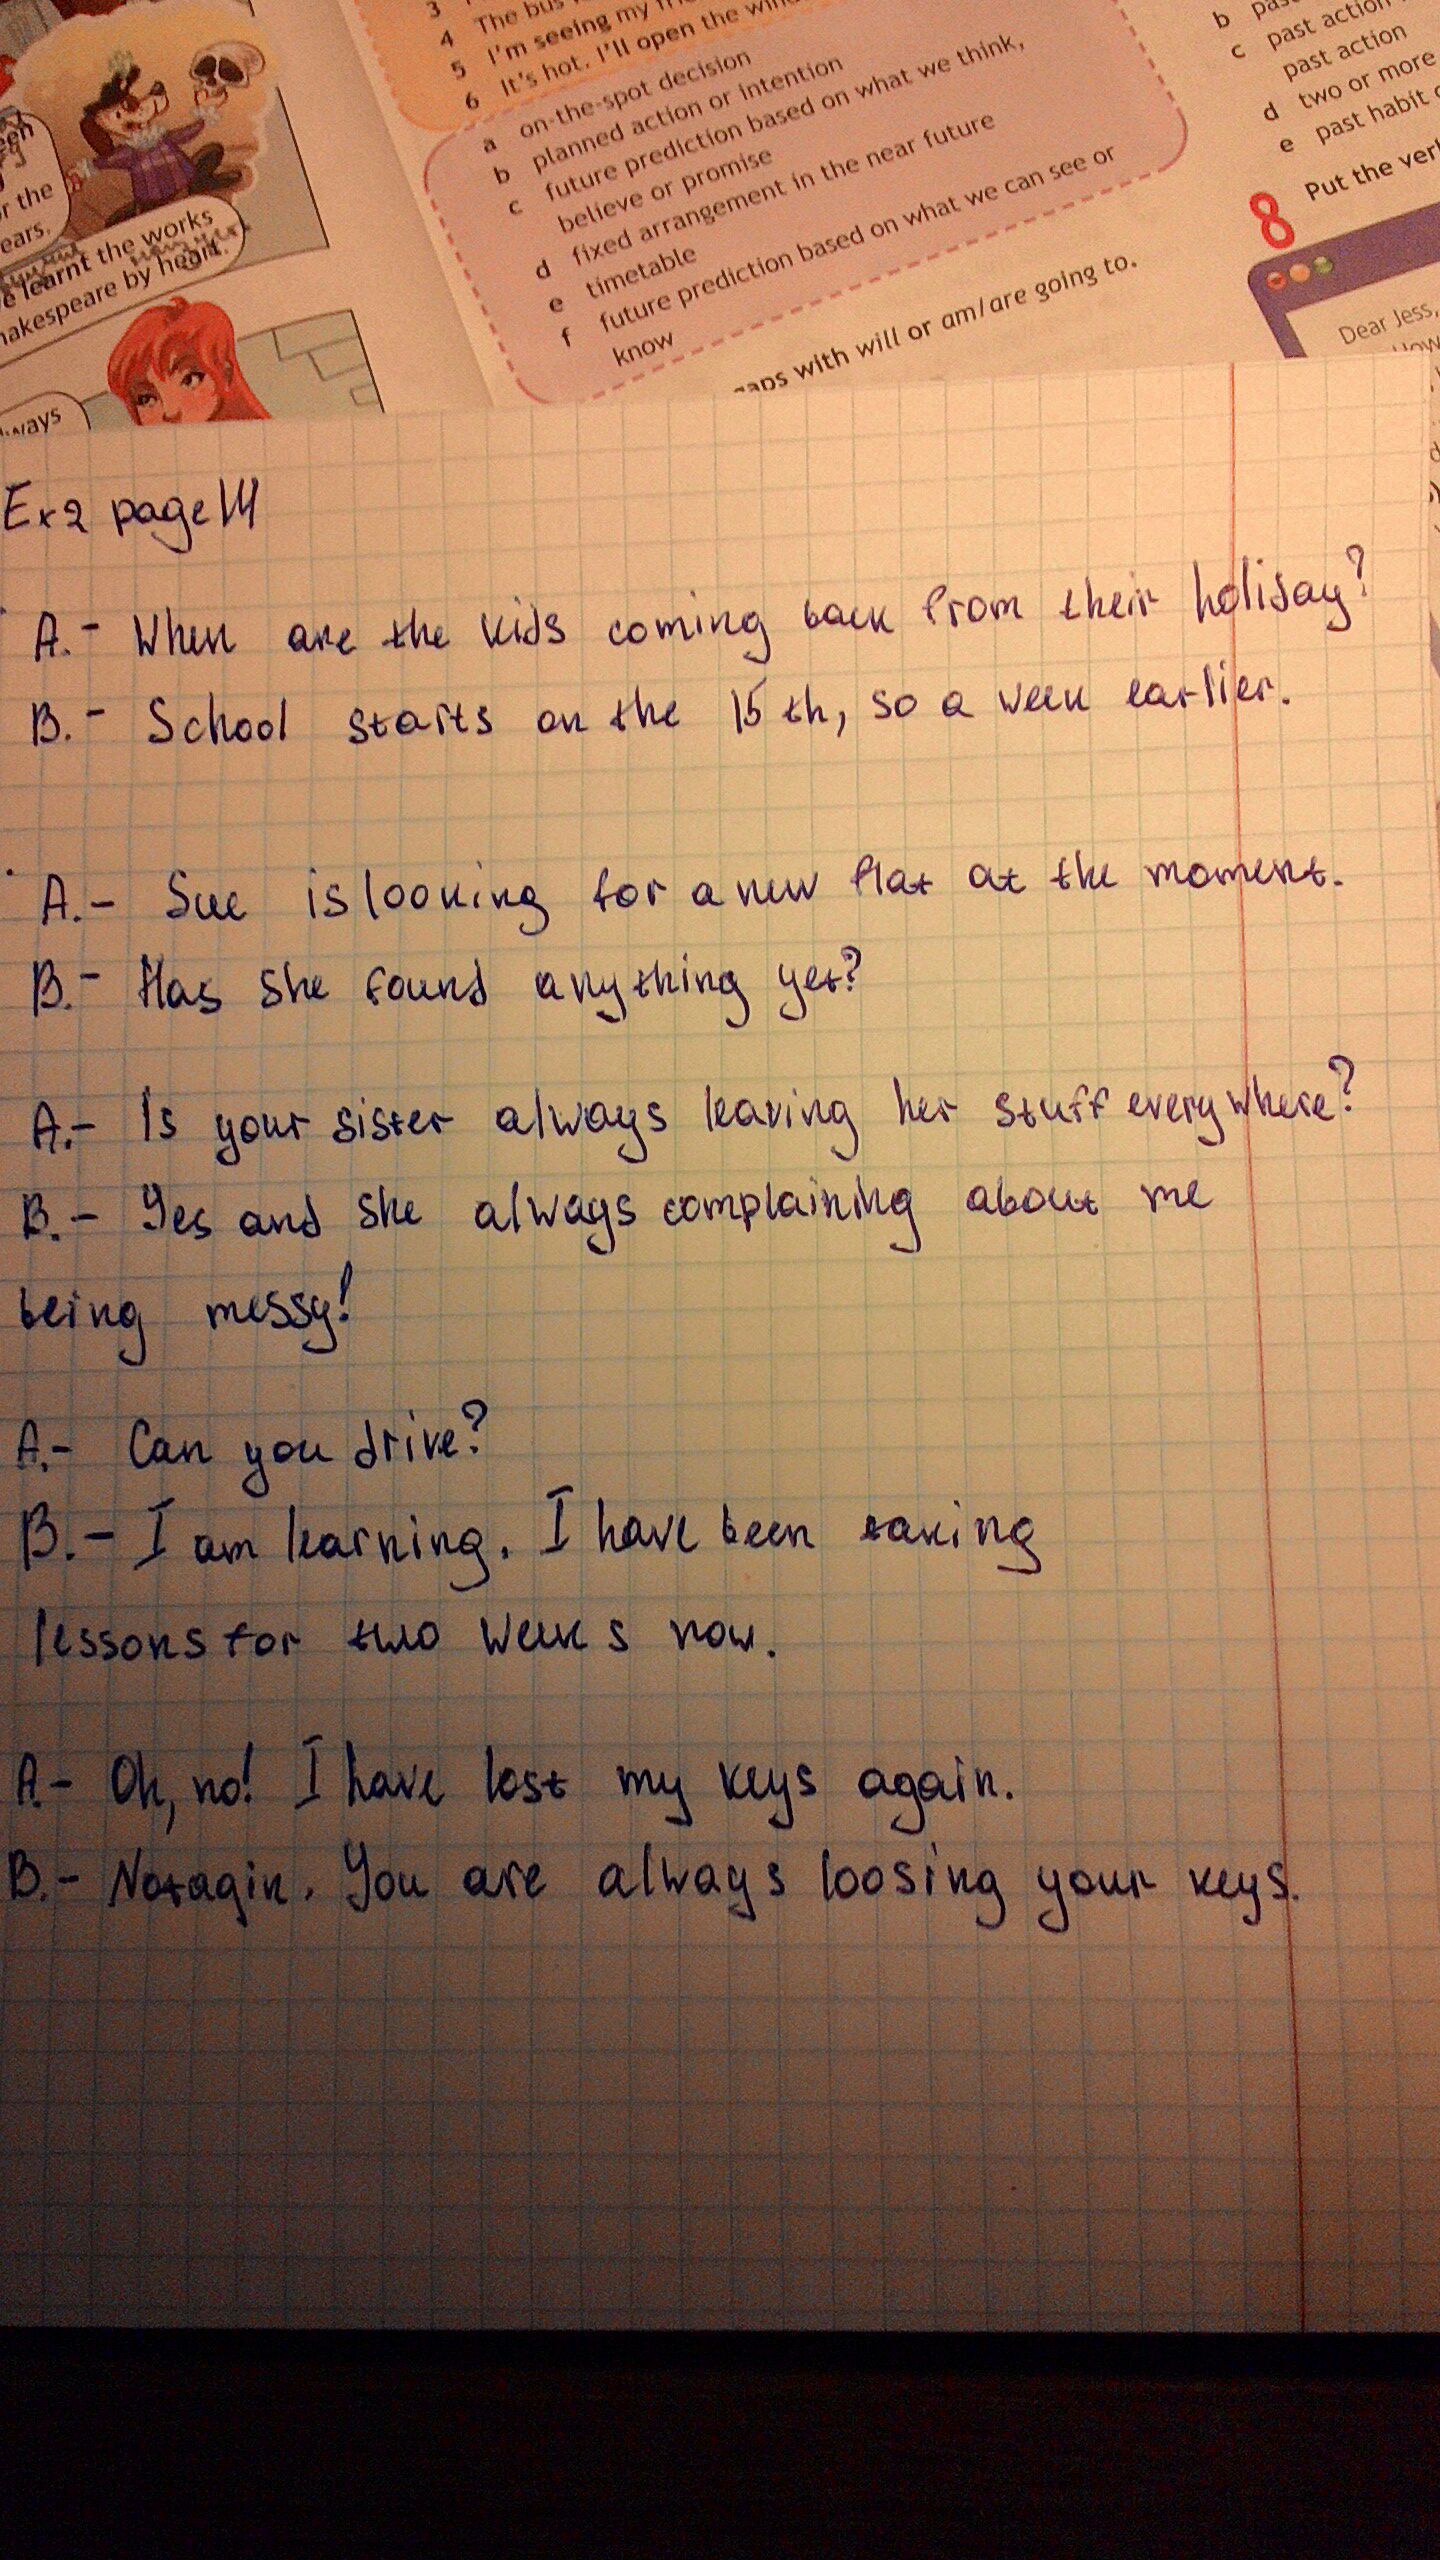 3
4 The bus
5 I'm seeing my
6 It's hot. I'll open the
a on-the-spot decision
b planned action or intention
c future prediction based on what we think,
believe or promise
d fixed arrangement in the near future
e timetable
f future prediction based on what we can see or
know
with will or am/are going to.
b
c past action
past action
d two or more
e past habit
8 Put the
Dear Jess,
the
ears.
learnt the works
by heart.
Ex 2 page 141
A.- When are the kids coming back from their holiday?
B.- School starts on the 15th, so a week earlier.
A.- Sue is looking for a new flat at the moment.
B.- Has she found anything yet?
A.- Is your sister always leaving her stuff everywhere?
B.- Yes and she always complaining about me
being messy!
A.- Can you drive?
B.- I am learning. I have been taking
lessons for two weeks now.
A.- Oh, no! I have lost my keys again.
B.- Not agin. You are always loosing your keys.